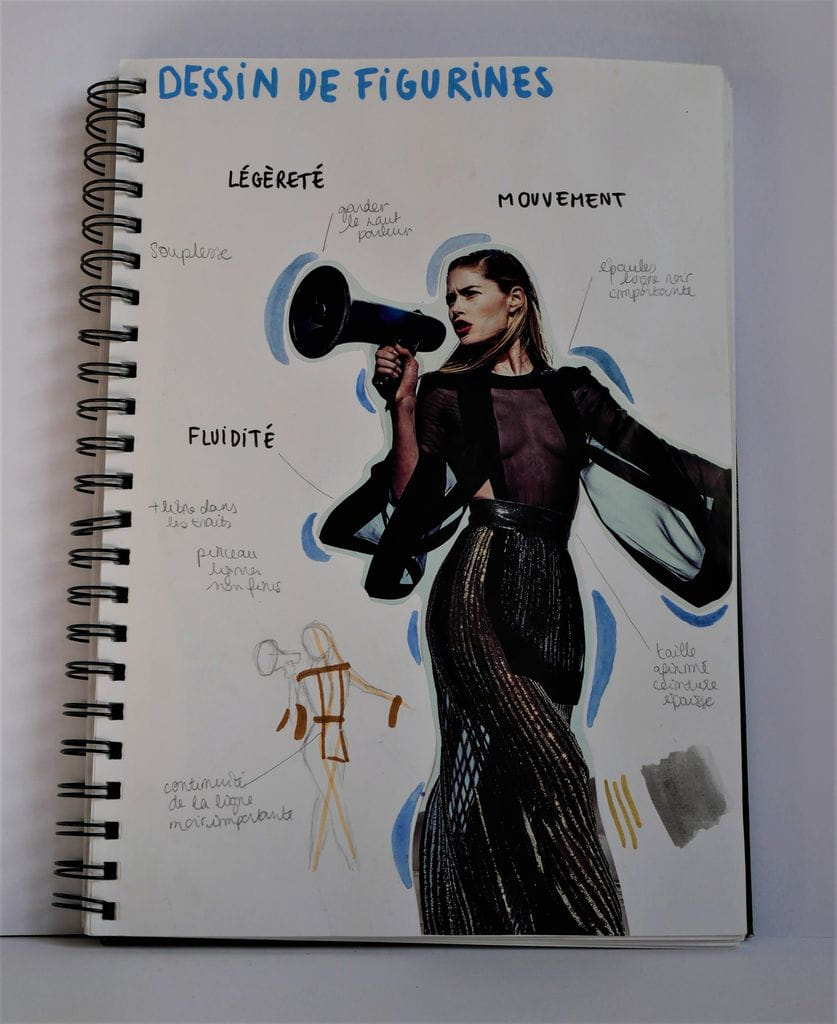 DESSIN DE FIGURINES
LÉGÈRETÉ
MOUVEMENT
garder
le haut
parleur
Souplesse
épaules
ligne noir
importante
FLUIDITÉ
+ libre dans
les traits
pinceau
lignes
non finis
taille
afirmé
ceinture
épaisse
continuité
de la ligne
noir importante